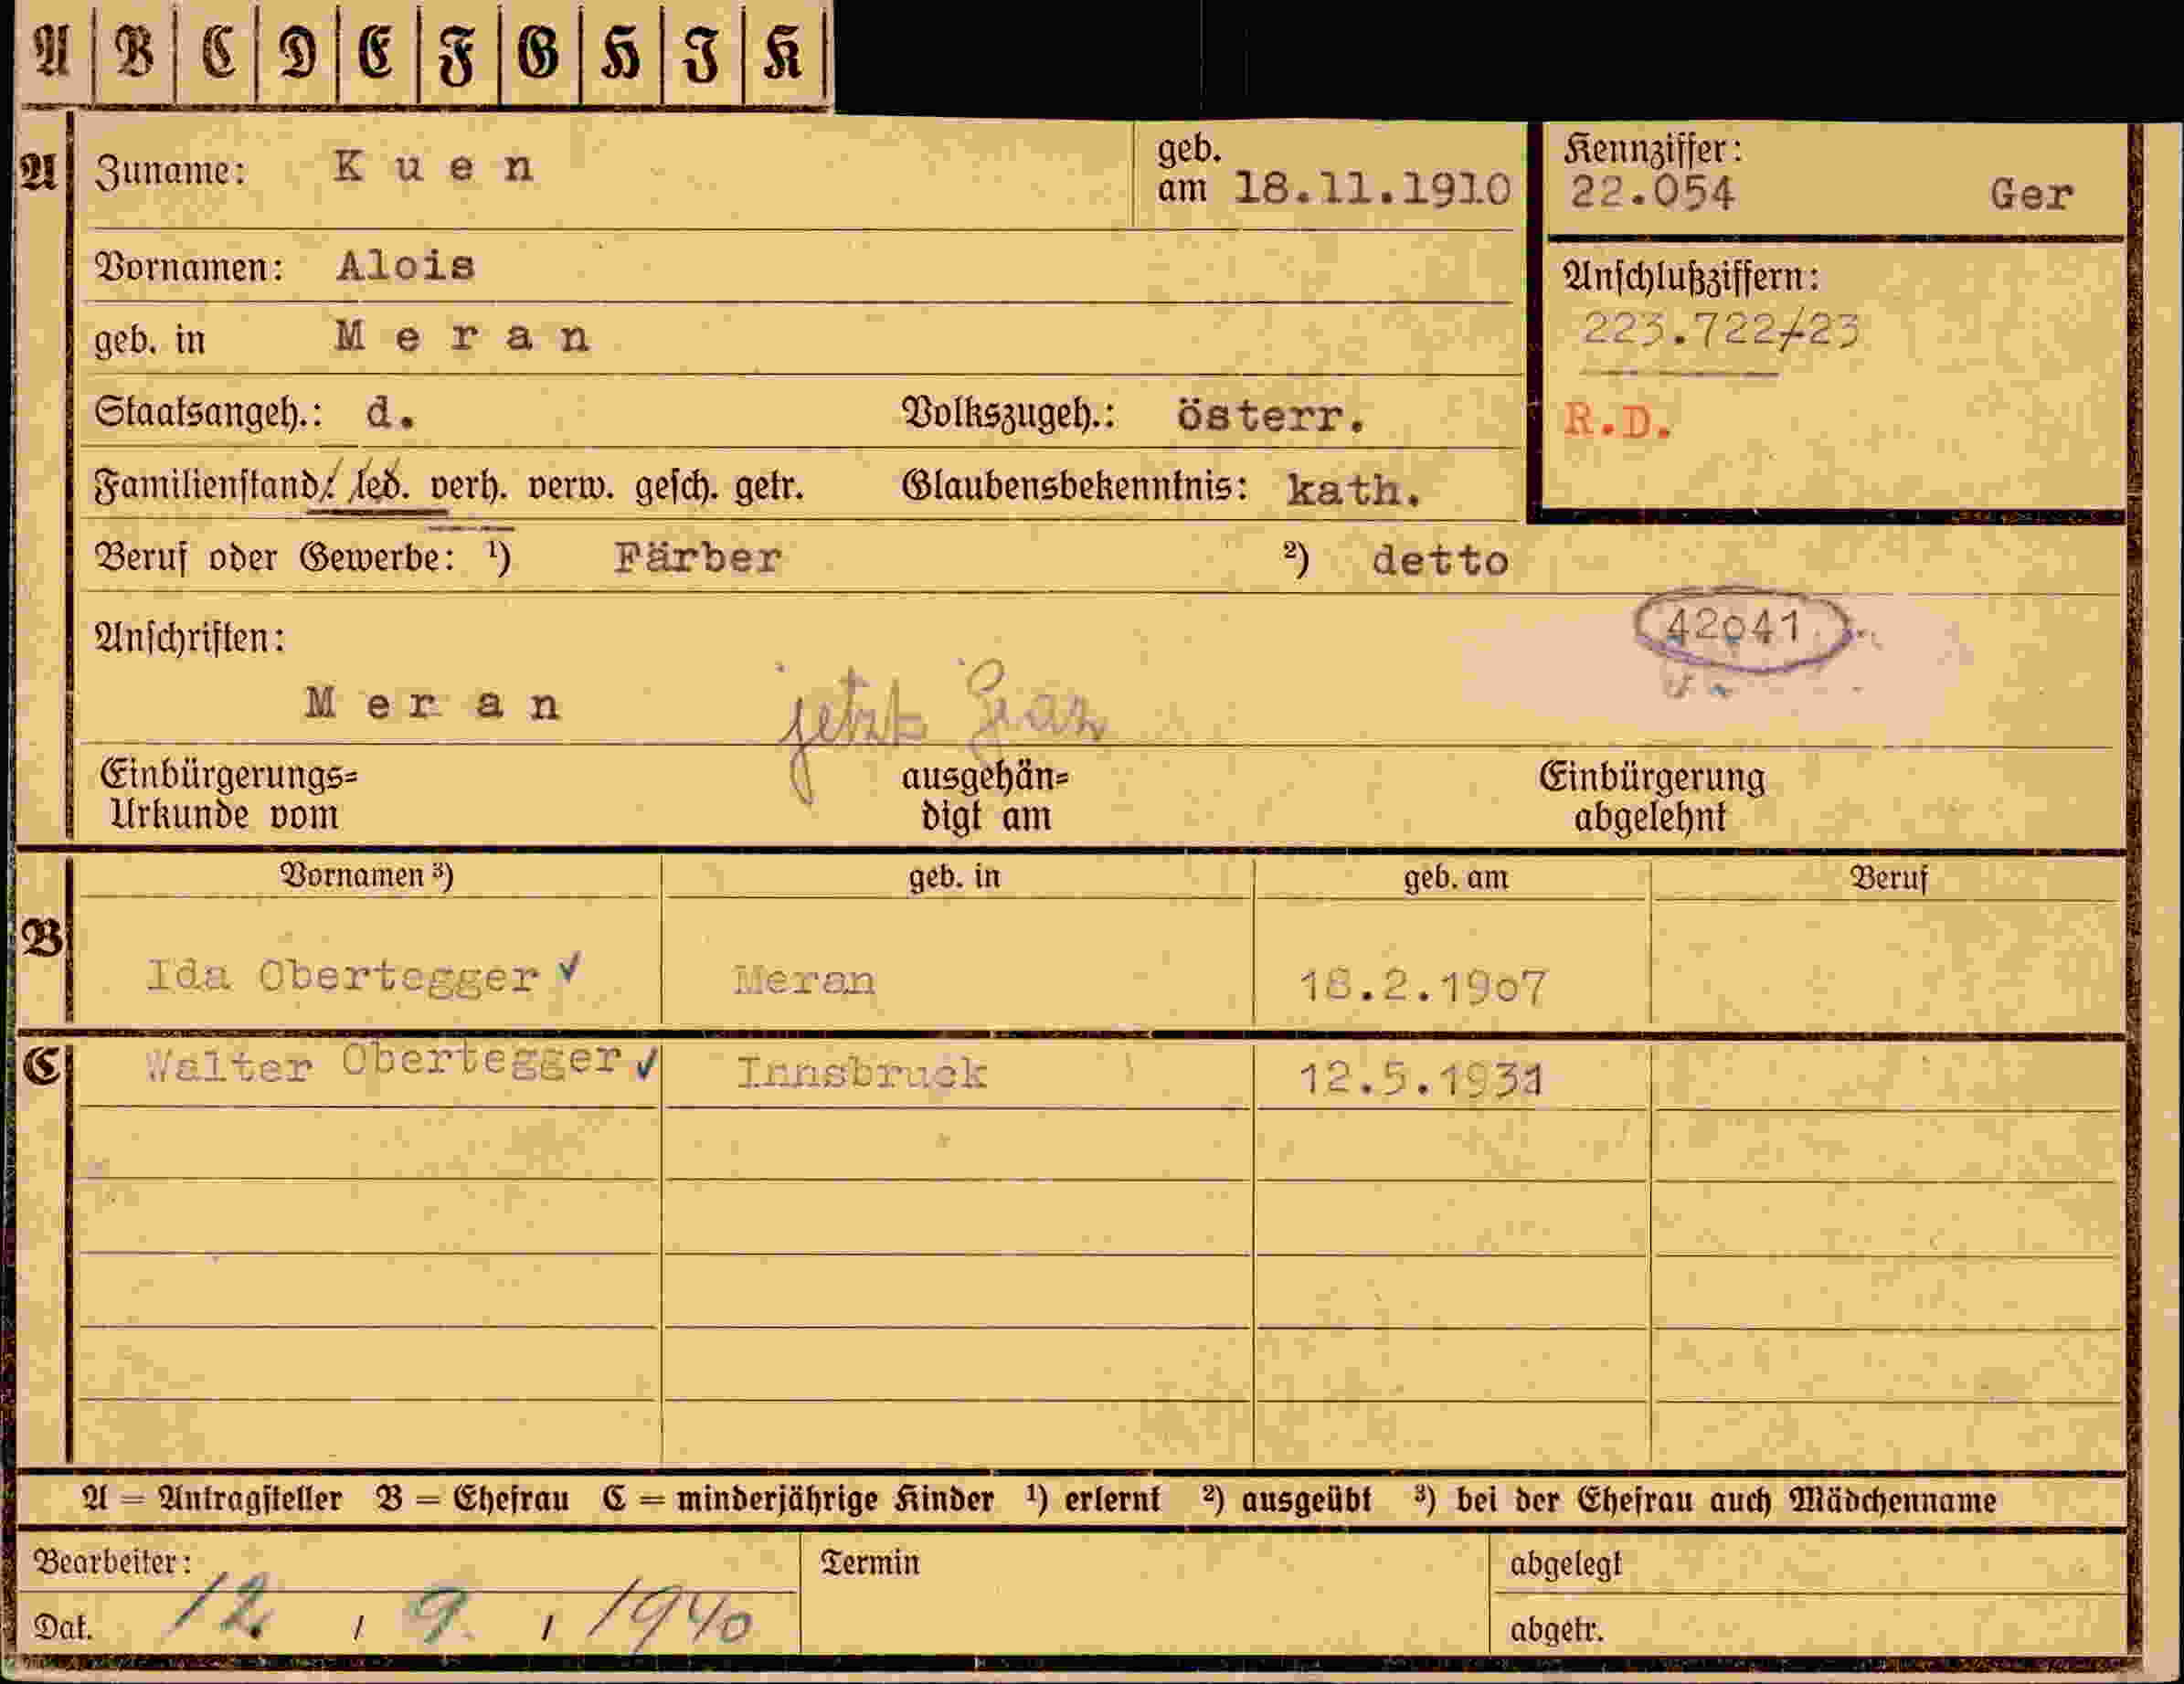 A B C D E F G H J K
A Zuname: Kuen geb. am 18.11.1910 Kennziffer: 22.054 Ger
Vornamen: Alois Anschlußziffern:
geb. in Meran 223.722/23
Staatsangeh.: d. Volkszugeh.: österr. R.D.
Familienstand: led. verh. verw. gesch. getr. Glaubensbekenntnis: kath.
Beruf oder Gewerbe: ¹) Färber ²) detto
Anschriften: 42o41
Meran jetzt Graz
Einbürgerungs= ausgehän= Einbürgerung
Urkunde vom digt am abgelehnt
Vornamen ³) geb. in geb. am Beruf
B Ida Obertegger ✓ Meran 18.2.19o7
C Walter Obertegger ✓ Innsbruck 12.5.1931
A = Antragsteller B = Ehefrau C = minderjährige Kinder ¹) erlernt ²) ausgeübt ³) bei der Ehefrau auch Mädchenname
Bearbeiter: Termin abgelegt
Dat. 12. / 9. / 1940 abgetr.